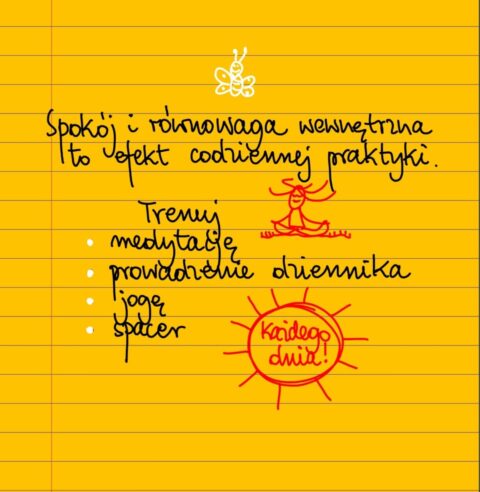 Spokój i równowaga wewnętrzna
to efekt codziennej praktyki.
Trenuj
• medytację
• prowadzenie dziennika
• jogę
• spacer
Każdego
dnia!